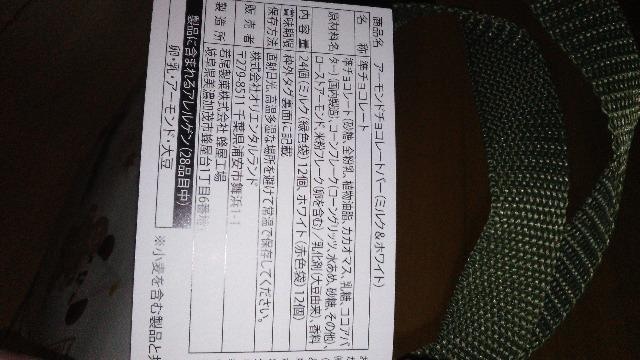 商品名 アーモンドチョコレートバー(ミルク&ホワイト)
名称 準チョコレート
原材料名 準チョコレート(砂糖、全粉乳、植物油脂、カカオマス、乳糖、ココアバ
ター)(国内製造)、コーンフレーク(コーングリッツ、水あめ、砂糖、その他)、
ローストアーモンド、米粉フレーク(卵を含む)/乳化剤(大豆由来)、香料
内容量 24個(ミルク(緑色袋)12個、ホワイト(赤色袋)12個)
賞味期限 枠外タグ裏面に記載
保存方法 直射日光、高温多湿な場所を避けて常温で保存してください。
販売者 株式会社オリエンタルランド
〒279-8511 千葉県浦安市舞浜1-1
製造所 若尾製菓株式会社 蜂屋工場
岐阜県美濃加茂市蜂屋台1丁目6番地
製品に含まれるアレルゲン(28品目中)
卵・乳・アーモンド・大豆
※小麦を含む製品と